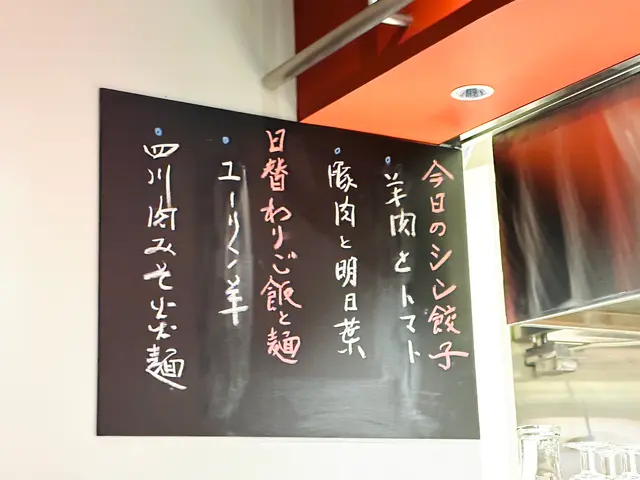 今日のシン餃子
羊肉とトマト
豚肉と明日葉
日替わりご飯と麺
ユーリン羊
四川肉みそ炎麺